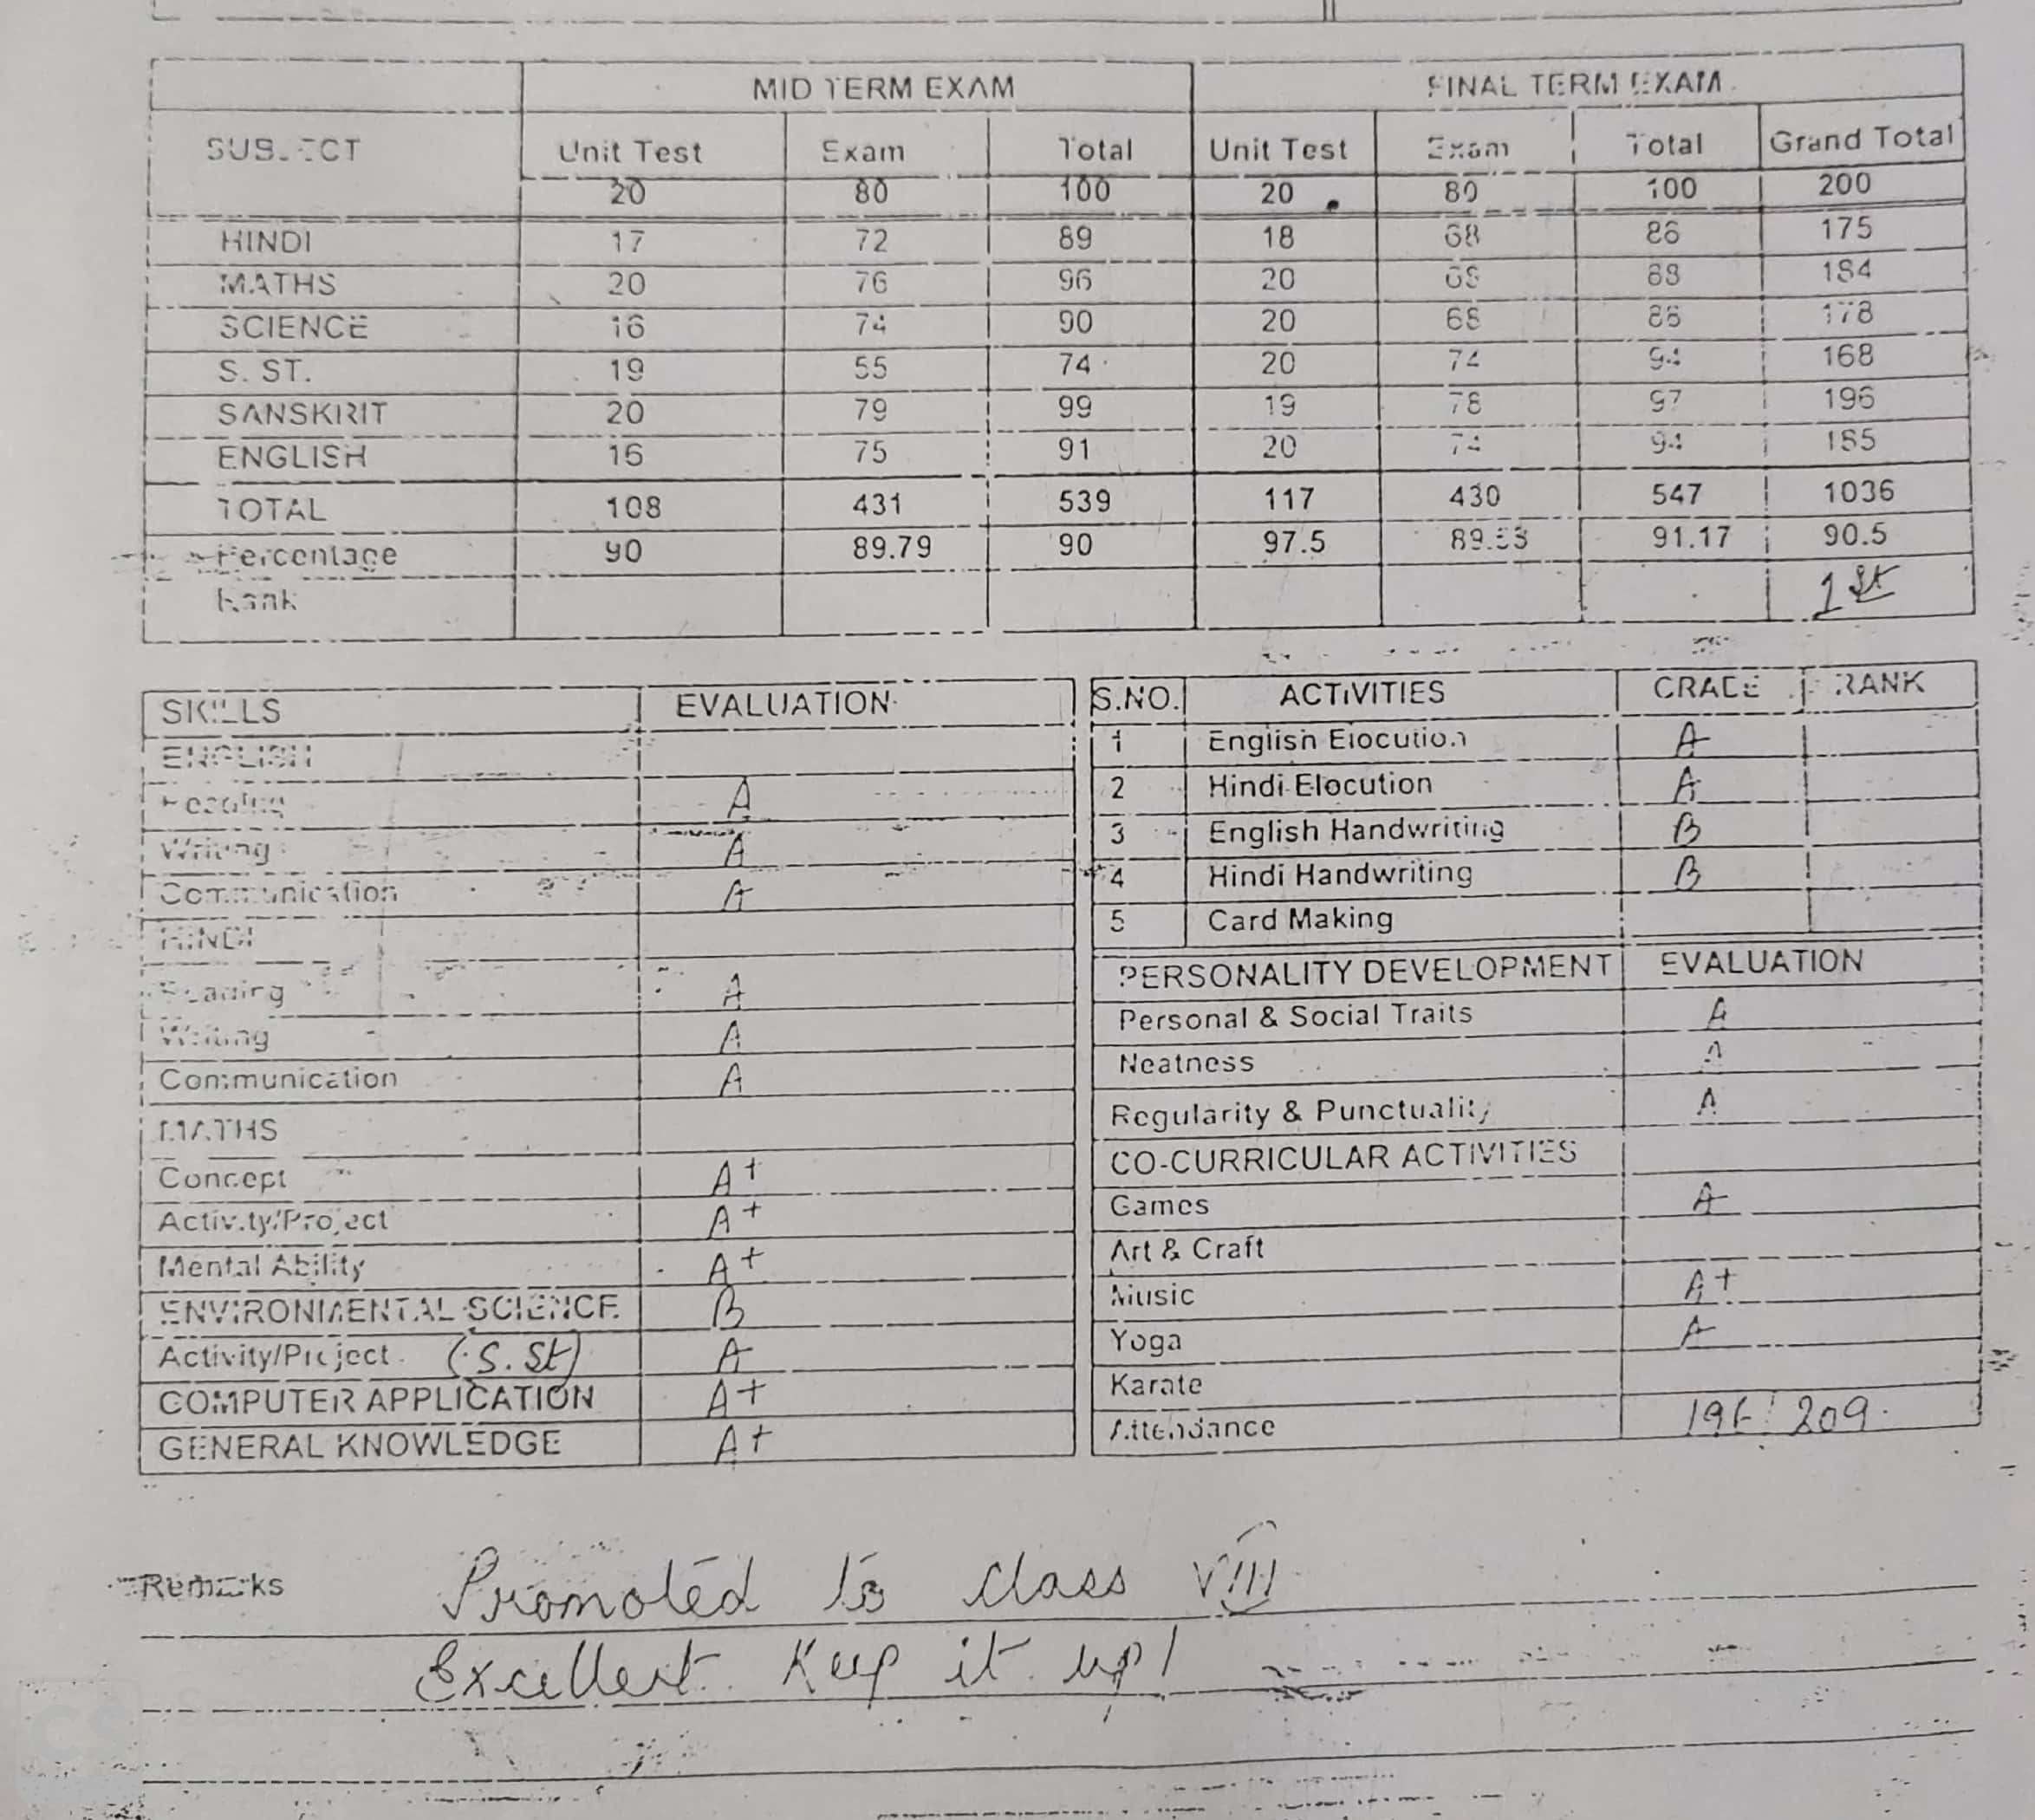 MID TERM EXAM FINAL TERM EXAM
SUBJECT Unit Test Exam Total Unit Test Exam Total Grand Total
20 80 100 20 80 100 200
HINDI 17 72 89 18 68 86 175
MATHS 20 76 96 20 68 88 184
SCIENCE 16 74 90 20 68 88 178
S. ST. 19 55 74 20 74 94 168
SANSKRIT 20 79 99 19 78 97 196
ENGLISH 16 75 91 20 74 94 185
TOTAL 108 431 539 117 430 547 1036
Percentage 90 89.79 90 97.5 91.17 90.5
Rank 1st
SKILLS EVALUATION
ENGLISH
Reading A
Writing A
Communication A
HINDI
Reading A
Writing A
Communication A
MATHS
Concept A+
Activity/Project A+
Mental Ability A+
ENVIRONMENTAL SCIENCE B
Activity/Project (S.St) A
COMPUTER APPLICATION A+
GENERAL KNOWLEDGE A+
S.NO. ACTIVITIES GRADE RANK
1 English Elocution A
2 Hindi Elocution A
3 English Handwriting B
4 Hindi Handwriting B
5 Card Making
PERSONALITY DEVELOPMENT EVALUATION
Personal & Social Traits A
Neatness A
Regularity & Punctuality A
CO-CURRICULAR ACTIVITIES
Games A
Art & Craft
Music A+
Yoga A
Karate
Attendance 209
Remarks Promoted to class VIII
Excellent. Keep it up!
CS